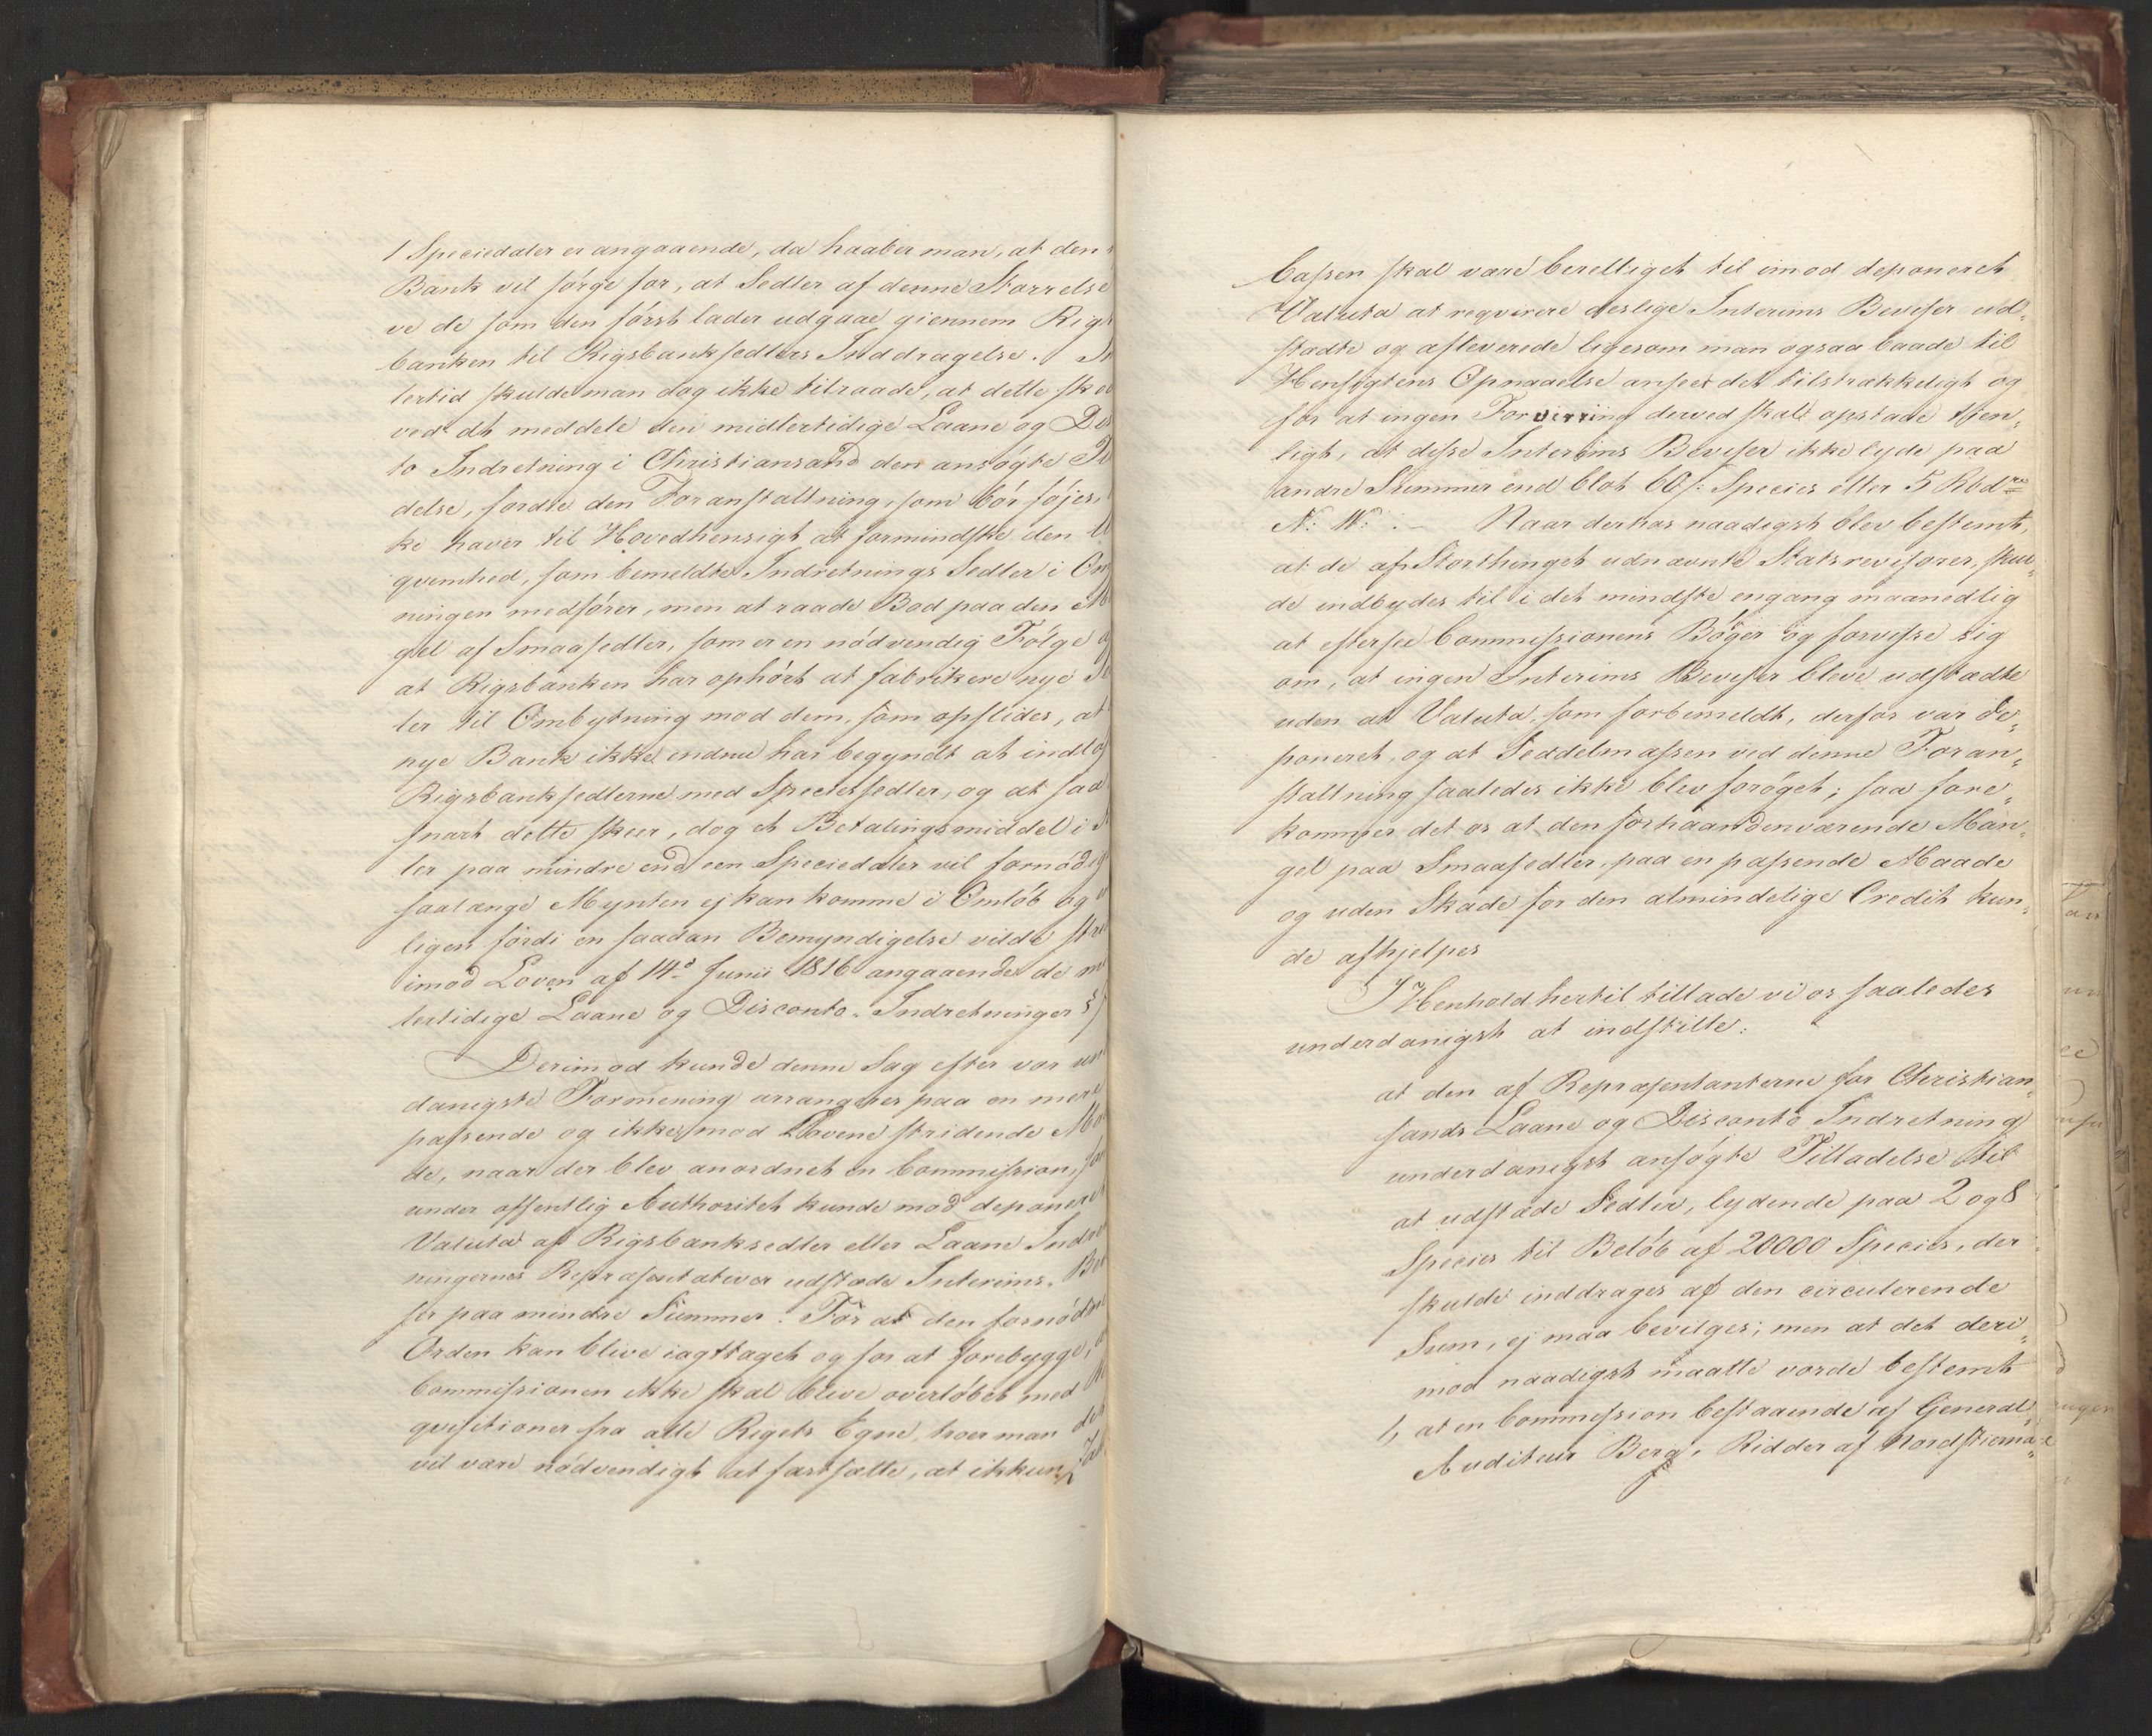 1 Speciedaler er angaaende, da haaber man, at den
Bank vil sørge for, at Sedler af denne Størrelse
ve de som den først lader udgaae giennem Rigs
banken til Rigsbanksedlers Inddragelse.
lertid skulde man dog ikke tilraade, at dette skee
ved at meddele den midlertidige Laane og Dis
to Indretning i Christiansand den ansøgte
delse, fordie den Foranstaltning, som bør føjes,
ke haver til Hovedhensigt at formindske den
qvemhed, som bemeldte Indretnings Sedler i Om
ningen medfører, men at raade Bod paa den
gel af Smaasedler, som er en nødvendig Følge
at Rigsbanken har ophørt at fabrikere nye
ler til Ombytning mod dem, som opslides, at
nye Bank ikke endnu har begyndt at indløs
Rigsbanksedlerne med Speciessedler, og at saa
snart dette skeer, dog et Betalingsmiddel i
ler paa mindre end een Speciedaler vil fornødig
saalænge Mynten ej kan komme i Omløb og
ligen fordi en saadan Bemyndigelse vilde stri
imod Loven af 14d Junii 1816 angaaende de
lertidige Laane og Disconto-Indretninger §
Derimod kunde denne Sag efter vor un
danigste Formening arrangeres paa en mere
passende og ikke mod Lovene stridende Maa
de, naar der blev anordnet en Commission,
under offentlig Authoritet kunde mod deponeret
Valuta af Rigsbanksedler eller Laane Indre
ningernes Repræsentativer udstæde Interims-Be
ser paa mindre Summer. For at den fornødne
Orden kan blive iagttaget og for at forebygge,
Commissionen ikke skal blive overløbet med
qvisitioner fra alle Rigets Egne, troer man det
vil være nødvendigt at fastsætte, at ikkun
Cassen skal være berettiget til imod deponeret
Valuta at reqvirere deslige Interims Beviser ud-
stædte og afleverede ligesom man ogsaa baade til
Hensigtens Opnaaelse anseer det tilstrækkeligt og
for at ingen Forvirring derved skal opstaae tien-
ligt, at disse Interims Beviser ikke lyde paa
andre Summer end blot 60 s: Species eller 5 Rbdre
N: W: - Naar derhos naadigst blev bestemt,
at de af Storthinget udnævnte Statsrevisorer, skul-
de indbydes til i det mindste engang maanedlig
at eftersee Commissionens Bøger og forvisse sig
om, at ingen Interims Beviser bleve udstædte
uden at Valuta, som forbemeldt, derfor var de-
poneret, og at Seddelmassen ved denne Foran-
staltning saaledes ikke blev forøget; saa fore-
kommer det os at den forhaandenværende Man-
gel paa Smaasedler, paa en passende Maade
og uden Skade for den almindelige Credit kun-
de afhjelpes
I Henhold hertil tillade vi os saaledes
underdanigst at indstille:
at den af Repræsentanterne for Christian-
sands Laane og Disconto Indretning
underdanigst ansøgte Tilladelse til
at udstæde Sedler, lydende paa 2 og 8
Species til Beløb af 20000 Species, der
skulde inddrages af den circulerende
Sum, ej maa bevilges; men at det deri-
mod naadigst maatte vorde bestemt
1, at en Commission bestaaende af General-
Auditeur Berg, Ridder af Nordstierna-